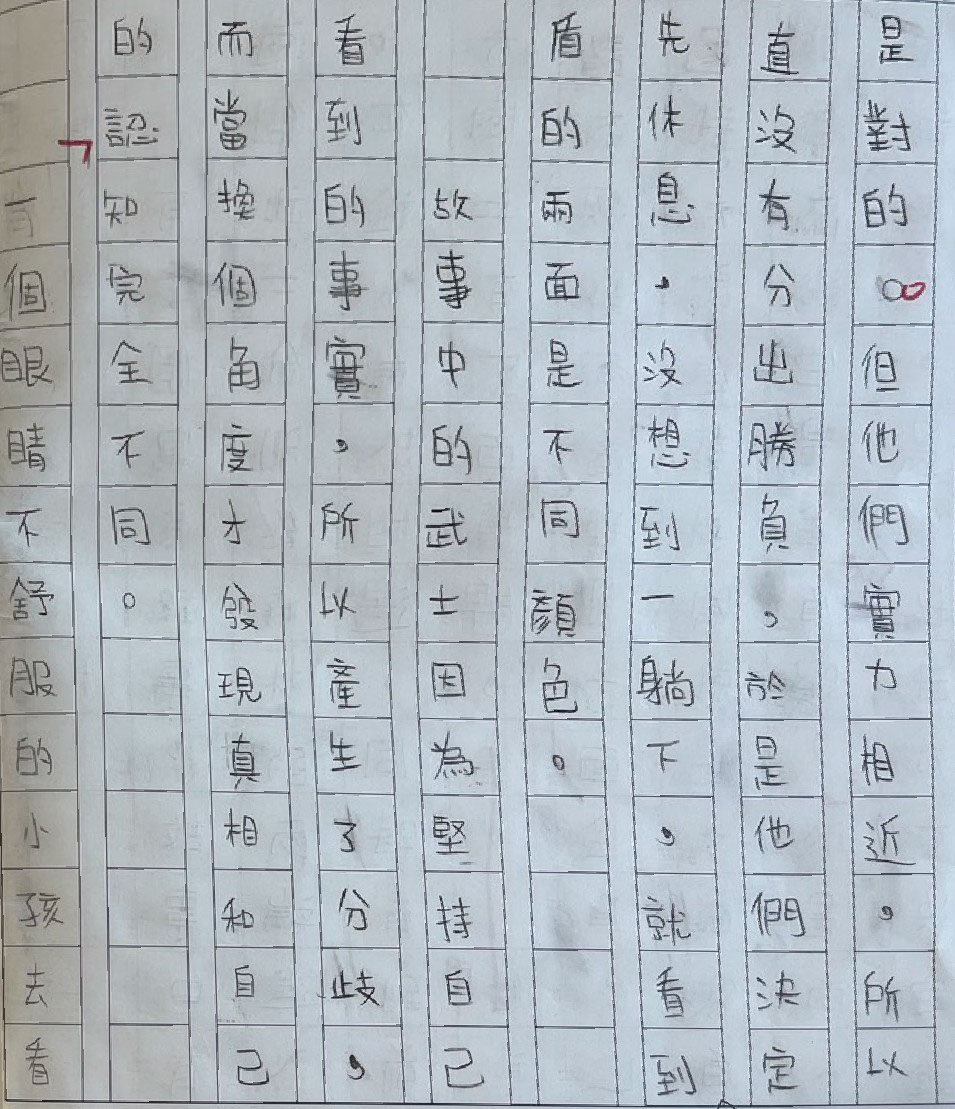 是對的。但他們實力相近，所以
直沒有分出勝負，於是他們決定
先休息，沒想到一躺下，就看到
盾的兩面是不同顏色。
故事中的武士因為堅持自己
看到的事實，所以產生了分歧，
而當換個角度才發現真相和自己
的認知完全不同。
有個眼睛不舒服的小孩去看